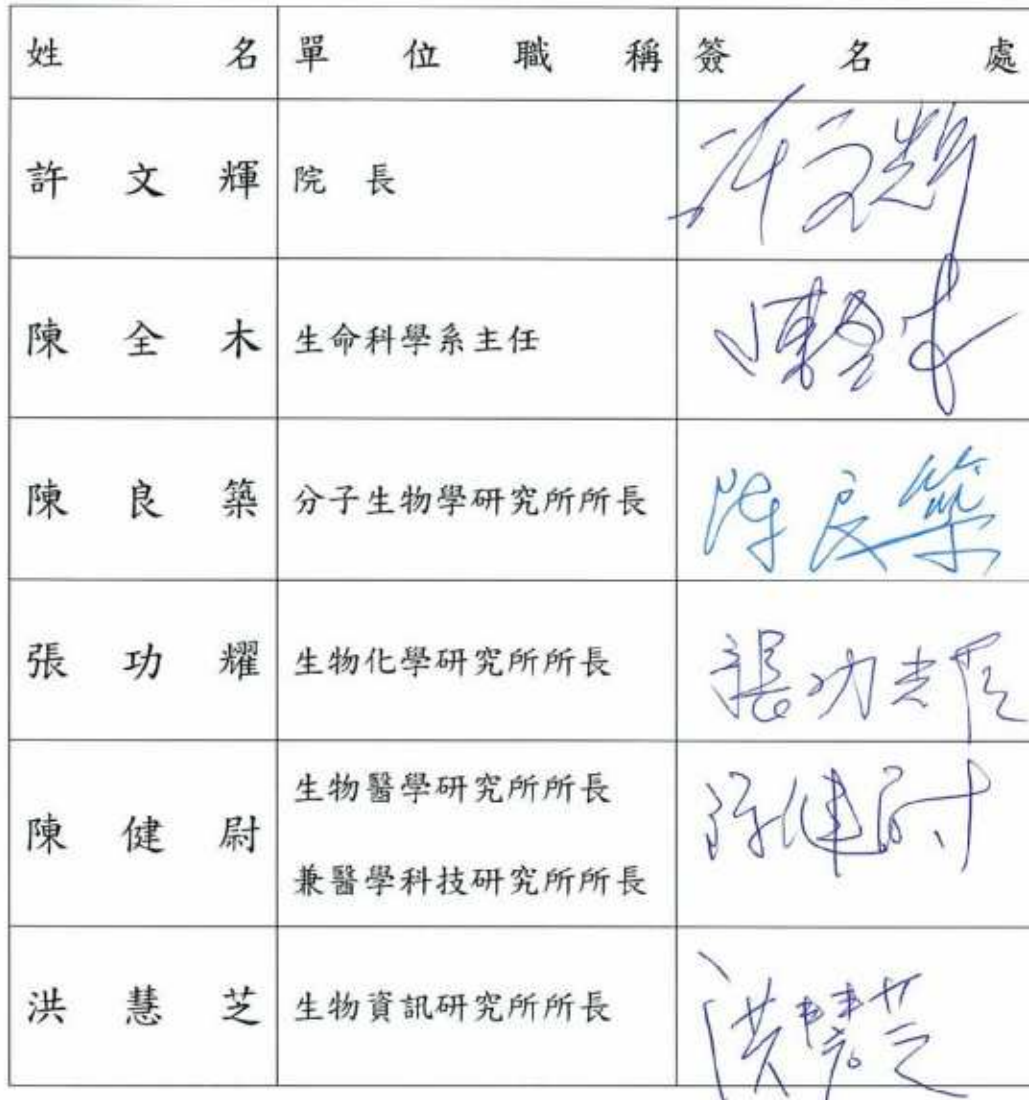 姓名 單位職稱 簽名處
許文輝 院長 許文輝
陳全木 生命科學系主任 陳全木
陳良築 分子生物學研究所所長 陳良築
張功耀 生物化學研究所所長 張功耀
生物醫學研究所所長
陳健尉 陳健尉
兼醫學科技研究所所長
洪慧芝 生物資訊研究所所長 洪慧芝